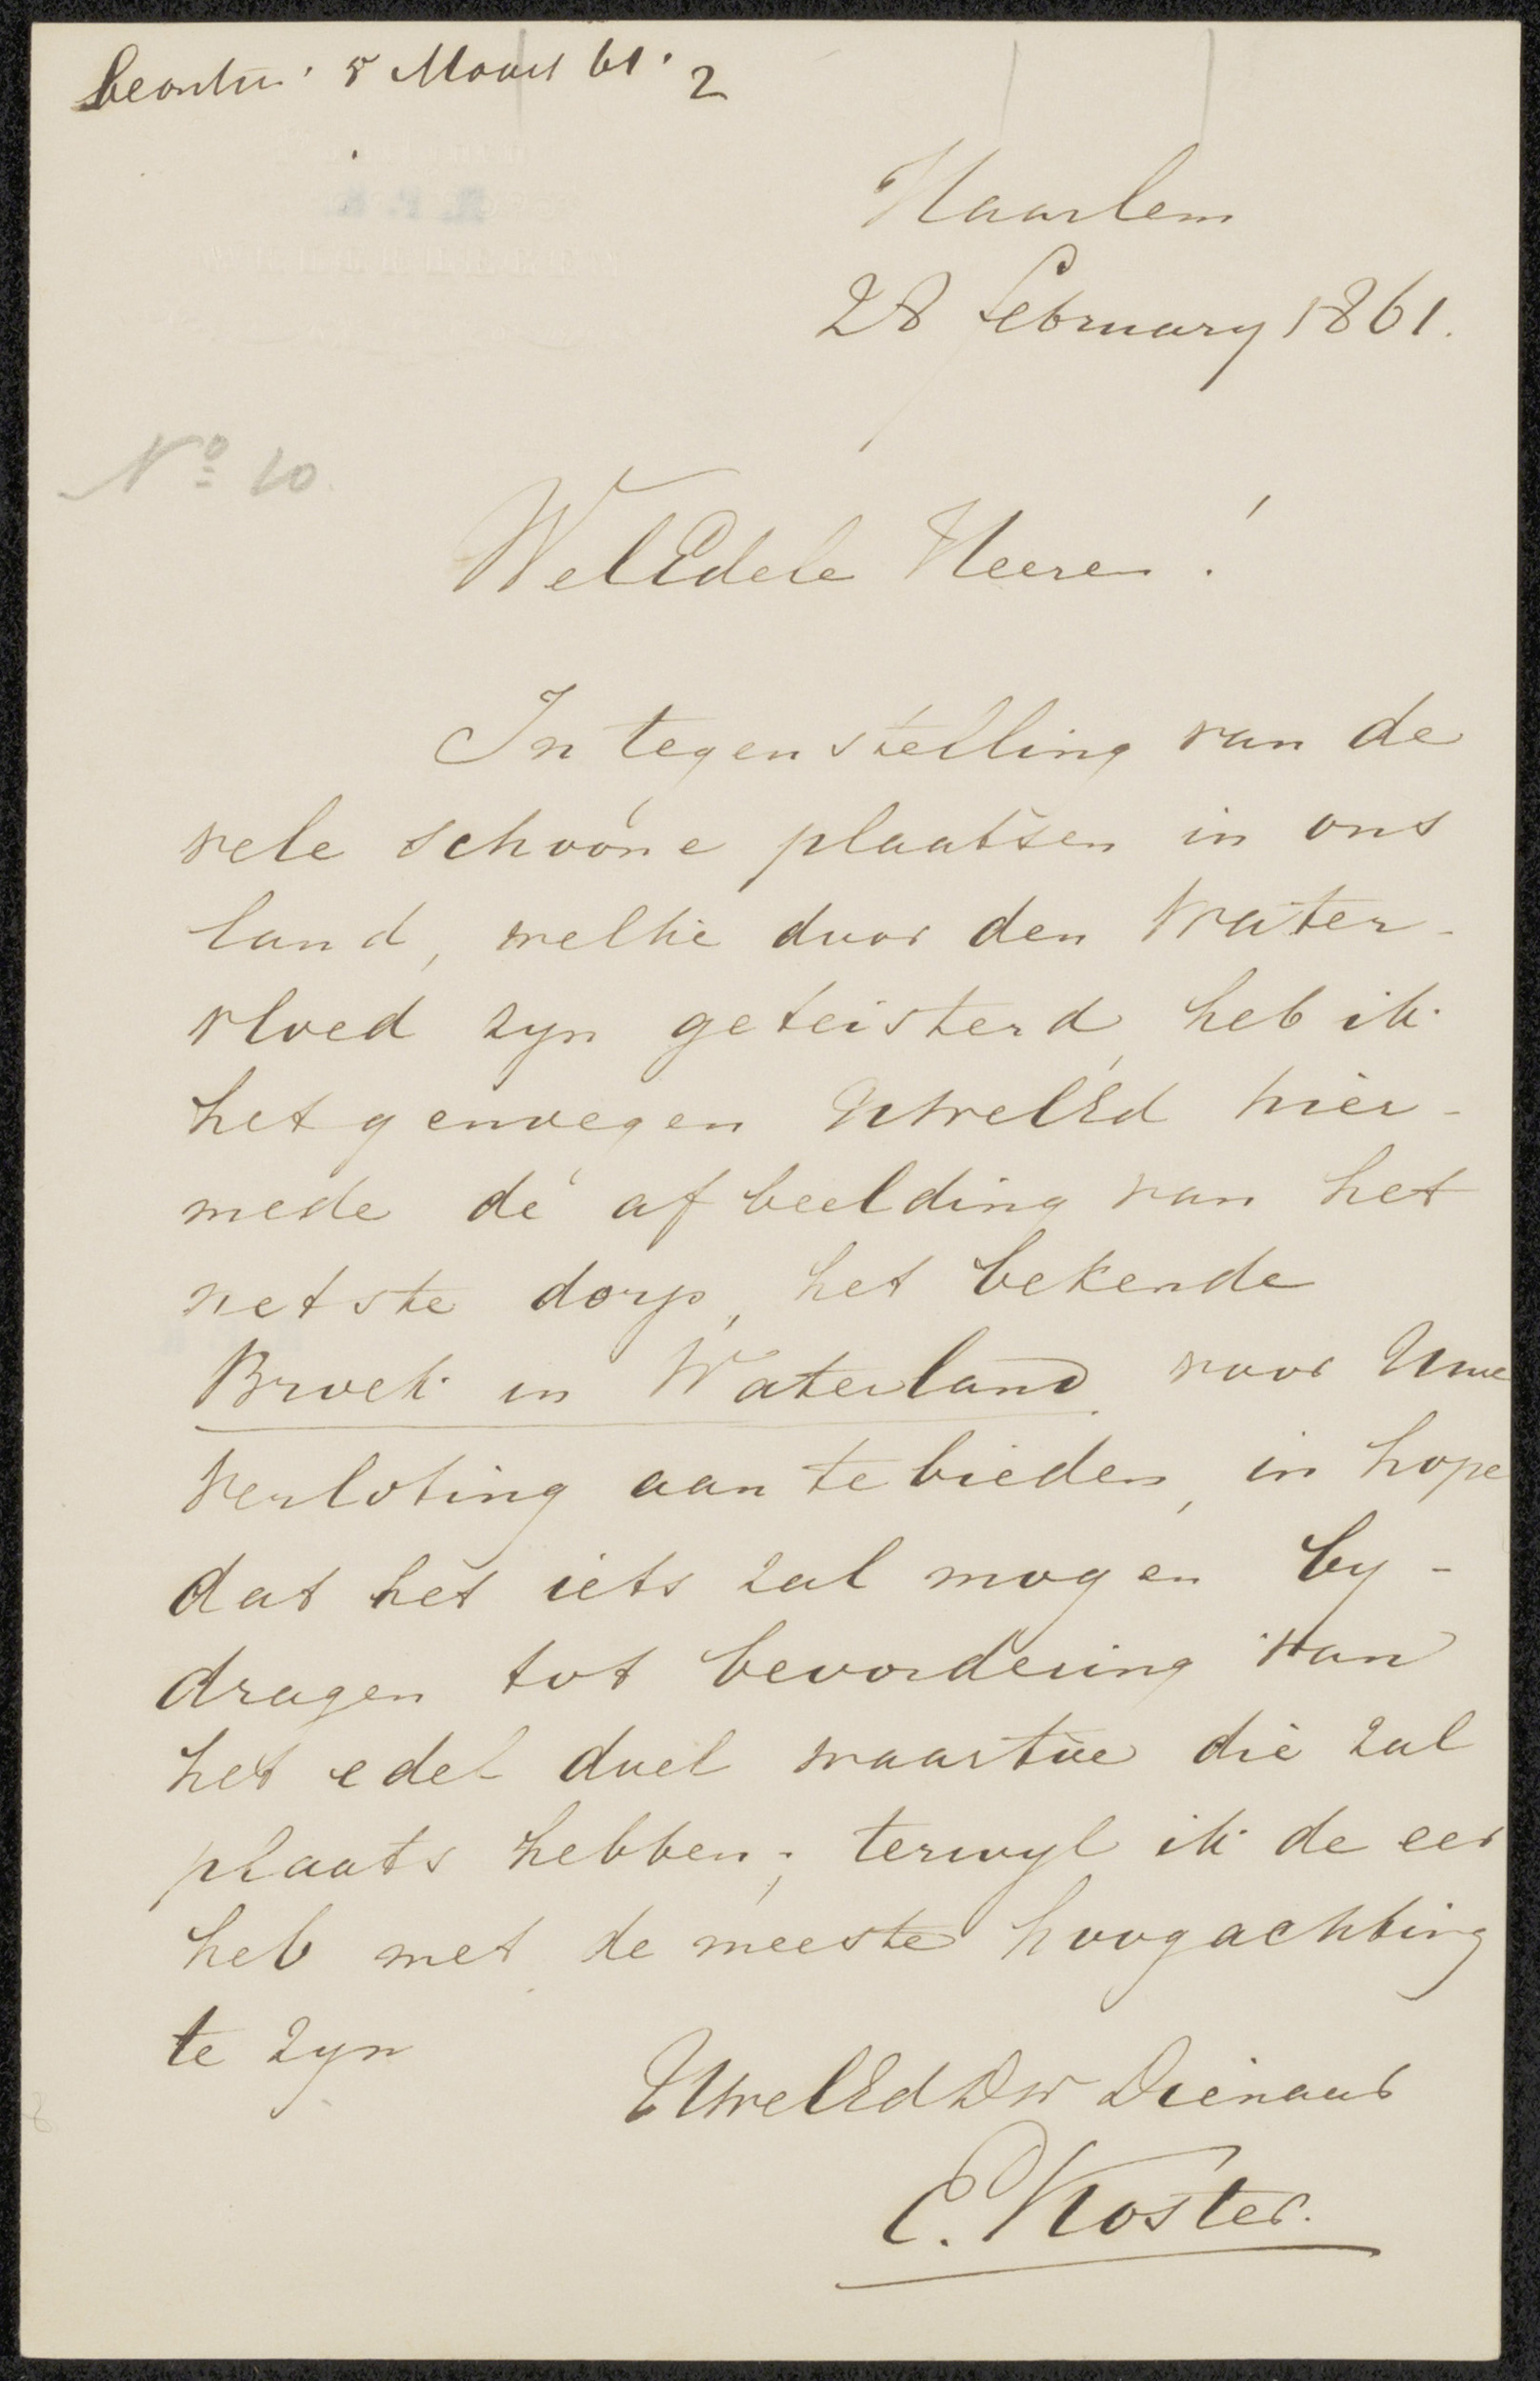 beantw. 5 Maart 61. 2
Haarlem
28 february 1861.
No 10.
WelEdele Heeren!
In tegenstelling van de
vele schoone plaatsen in ons
land, welke door den Water-
vloed zyn geteisterd, heb ik
het genoegen UwelEd hier-
mede de afbeelding van het
netste dorp, het bekende
Broek in Waterland voor Uwe
verloting aan te bieden, in hope
dat het iets zal mogen by-
dragen tot bevordering van
het edel doel waartoe die zal
plaats hebben; terwyl ik de eer
heb met de meeste hoogachting
te zyn
UwelEdDw Dienaar
E. Koster.